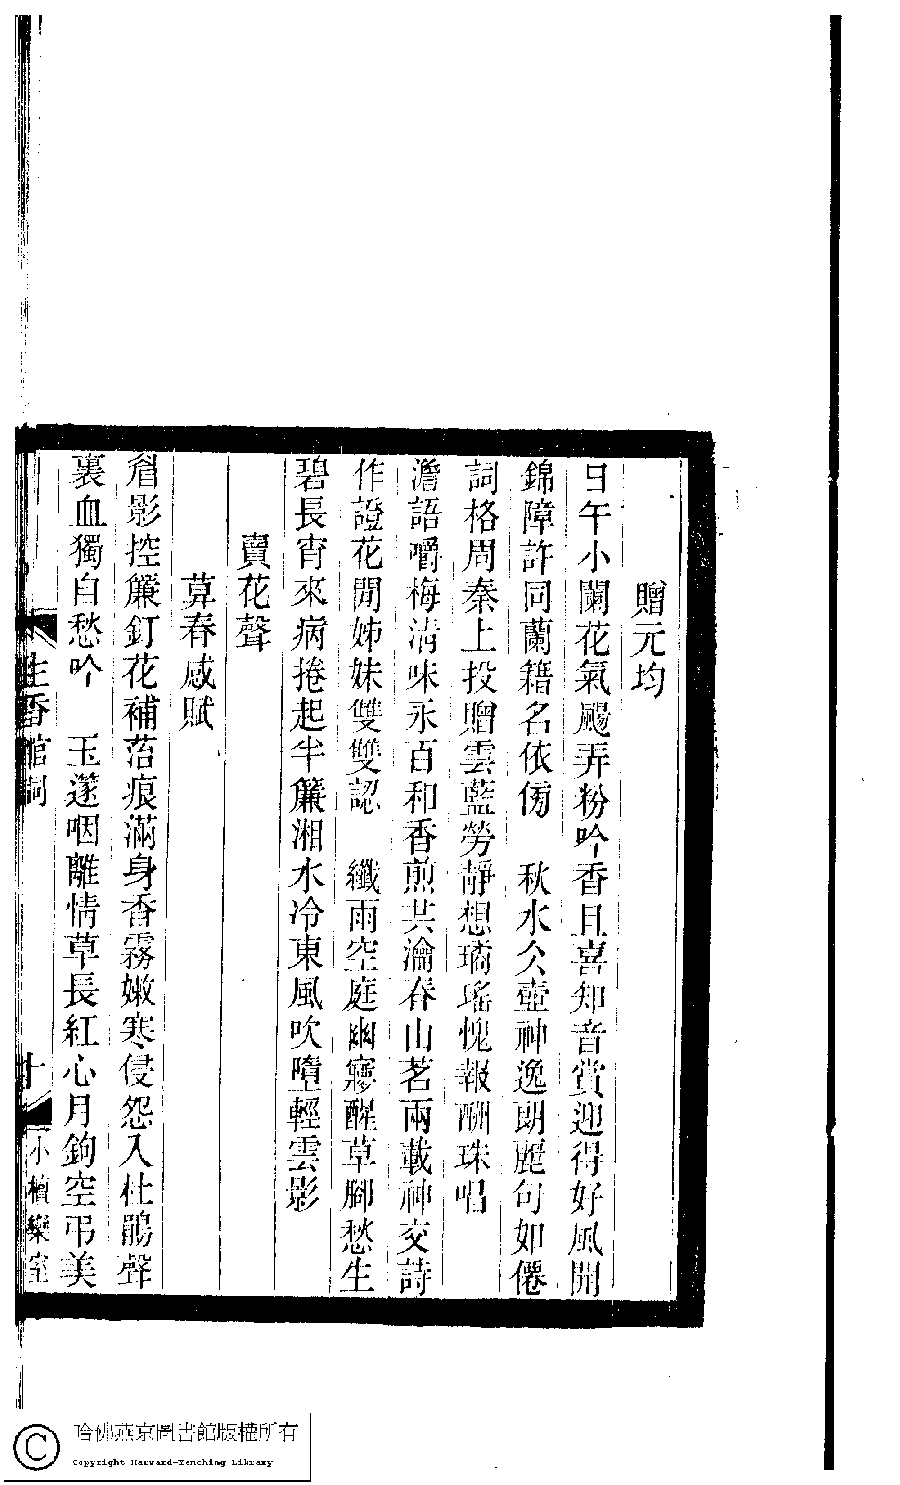 贈元均
日午小闌花氣颺弄粉吟香且喜知音賞迎得好風開
錦障許同蘭籍名依傍　秋水仌壺神逸朗麗句如僊
詞格周秦上投贈雲藍勞靜想璚瑤愧報酬珠唱
澹語嚼梅清味永百和香煎共瀹春山茗兩載神交詩
作證花開姊妹雙雙認　纖雨空庭幽寥醒草腳愁生
碧長宵來病捲起半簾湘水冷東風吹墮輕雲影
賣花聲
算春感賦
眉影控簾釘花補苔痕滿身香霧嫩寒侵怨入杜鵑聲
裏血獨自愁吟　玉邃咽離情草長紅心月鉤空弔美
生香館詞
十
小檀欒室
哈佛燕京圖書館版權所有
Copyright Harvard-Yenching Library